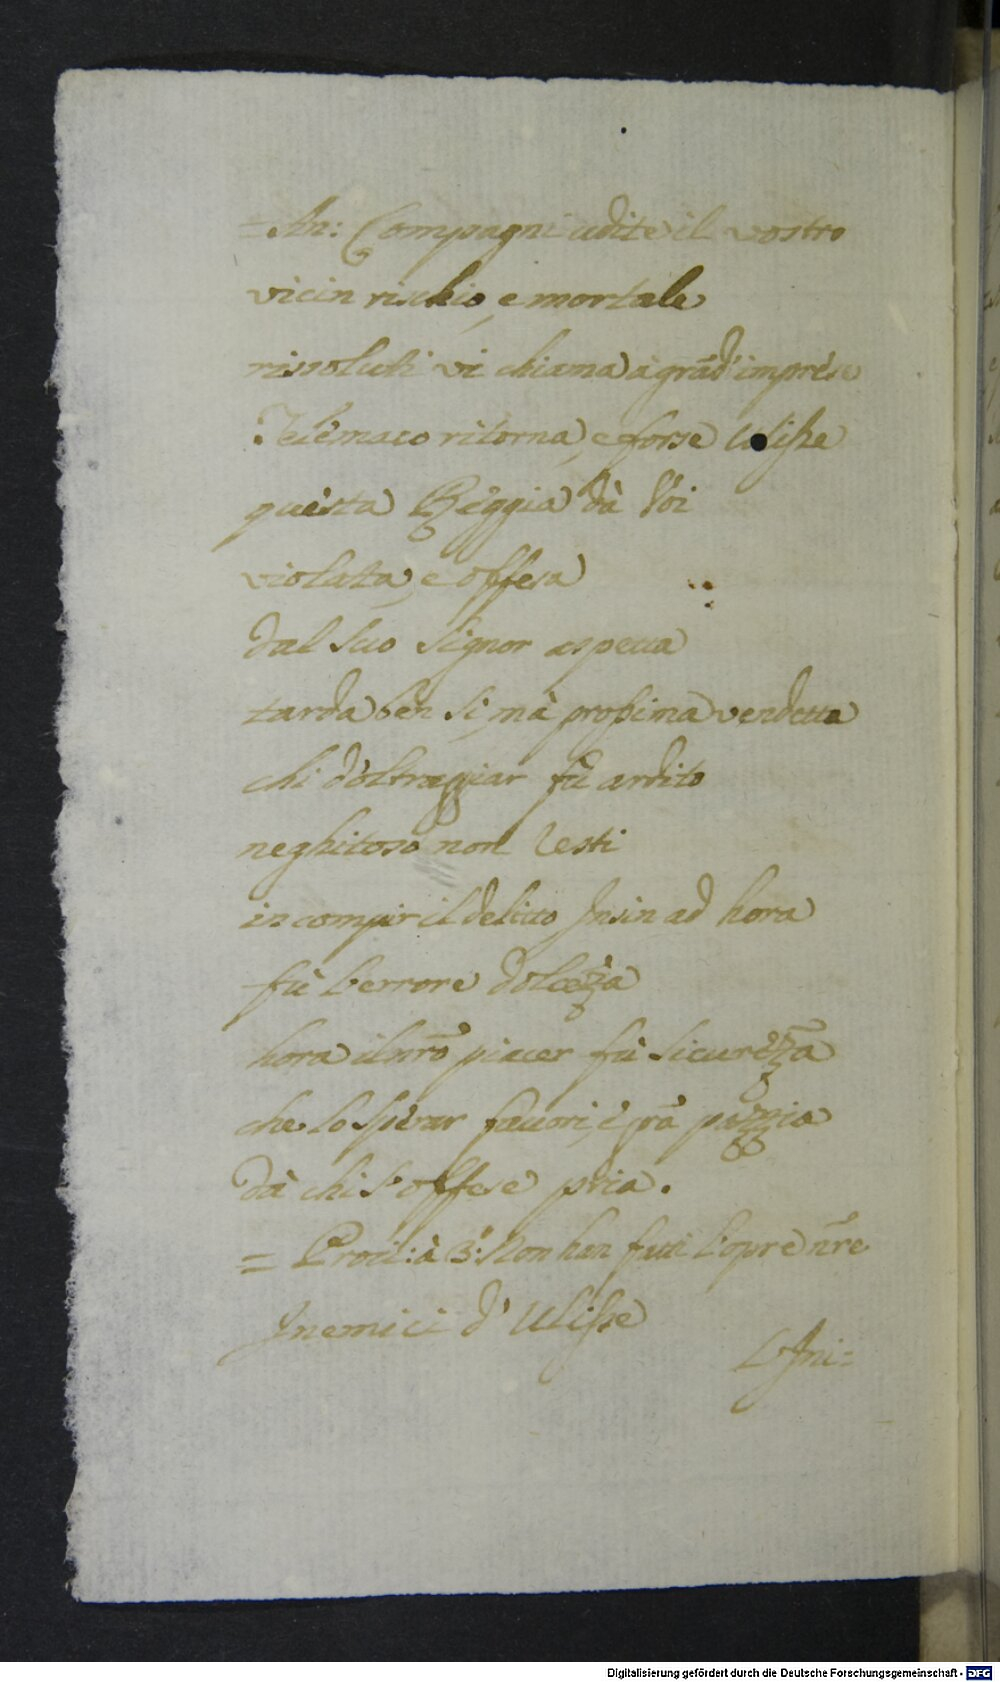 = An: Compagni udite il vostro
vicin rischio, e mortale
rissoluti vi chiama à grãd' imprese
Telemaco ritorna, e forse Ulisse
questa Reggia dà Voi
violata, e offesa
dal suo Signor aspetta
tarda ben sì, mà prossima vendetta
chi d'oltraggiar fù ardito
neghitoso non resti
in compir il delitto, Insin ad hora
fù l'errore dolcezza
hora il nrõ piacer fù sicurezza
che lo sperar favori, è grã pazzia
dà chi s'offese pria.
= Proci: à 3: Non han fatti l'opre nr̃e
Inemici d' Ulisse
L'Ani=
Digitalisierung gefördert durch die Deutsche Forschungsgemeinschaft - DFG